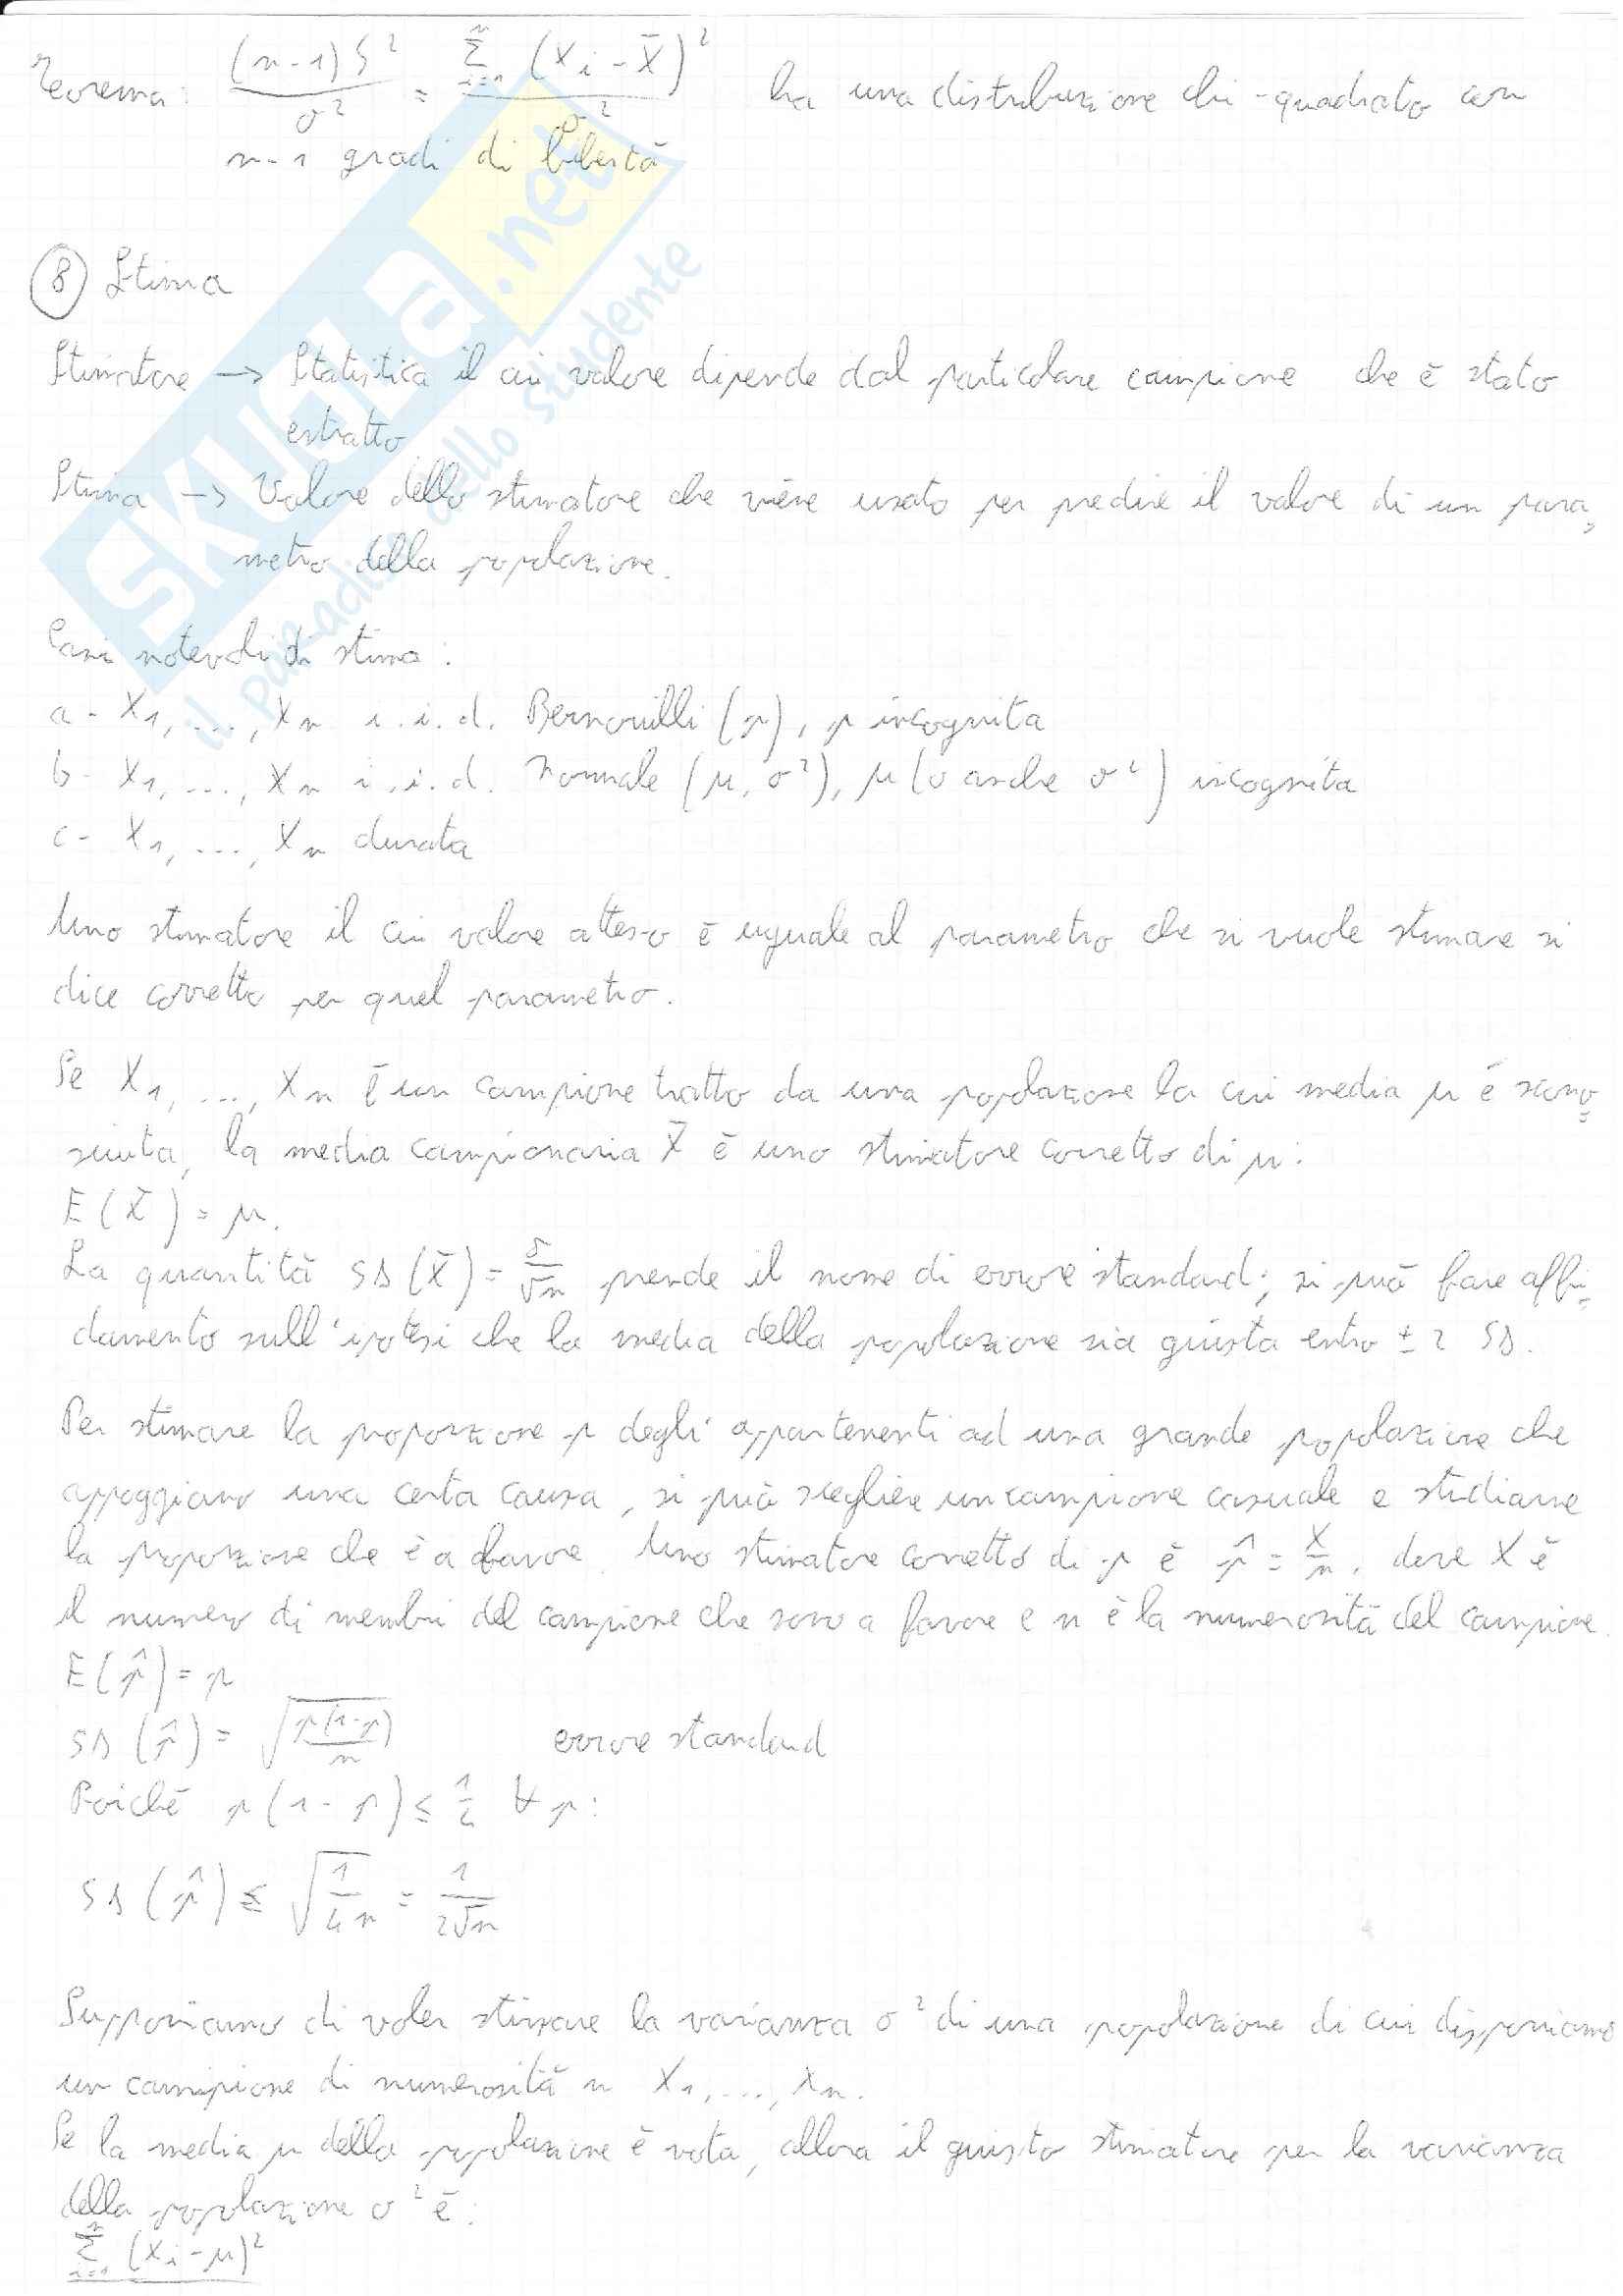 Teorema: (n-1)S² / σ² = Σⁿᵢ₌₁ (Xi - X̄)² / σ² ha una distribuzione chi-quadrato con
n-1 gradi di libertà
⑧ Stima
Stimatore → Statistica il cui valore dipende dal particolare campione che è stato
estratto
Stima → Valore dello stimatore che viene usato per predire il valore di un para,
metro della popolazione.
Casi notevoli di stima:
a- X₁, ..., Xn i.i.d. Bernouilli (p), p incognita
b- X₁, ..., Xn i.i.d. Normale (μ, σ²), μ (o anche σ²) incognita
c- X₁, ..., Xn durata
Uno stimatore il cui valore atteso è uguale al parametro che si vuole stimare si
dice corretto per quel parametro.
Se X₁, ..., Xn è un campione tratto da una popolazione la cui media μ è scono=
sciuta, la media campionaria X̄ è uno stimatore corretto di μ:
E(X̄) = μ.
La quantità SD(X̄) = σ/√n prende il nome di errore standard; si può fare affi=
damento sull'ipotesi che la media della popolazione sia giusta entro ± 2 SD.
Per stimare la proporzione p degli appartenenti ad una grande popolazione che
appoggiano una certa causa, si può scegliere un campione casuale e studiarne
la proporzione che è a favore. Uno stimatore corretto di p è p̂ = X/n, dove X è
il numero di membri del campione che sono a favore e n è la numerosità del campione.
E(p̂) = p
SD(p̂) = √(p(1-p)/n) errore standard
Poiché p(1-p) ≤ 1/2 ∀ p:
SD(p̂) ≤ √(1/4n) = 1/2√n
Supponiamo di voler stimare la varianza σ² di una popolazione di cui disponiamo
un campione di numerosità n X₁, ..., Xn.
Se la media μ della popolazione è nota, allora il giusto stimatore per la varianza
della popolazione σ² è:
Σⁿᵢ₌₁ (Xi - μ)²
SKUOLA.net
il paradiso dello studente